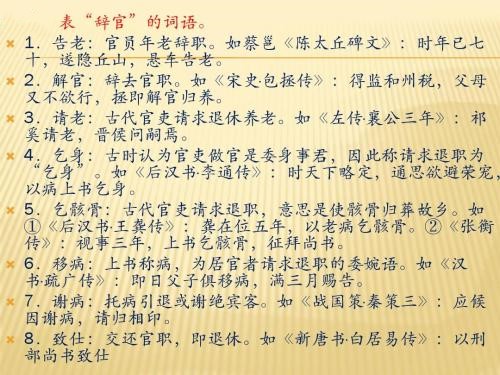 表“辞官”的词语。
1．告老：官员年老辞职。如蔡邕《陈太丘碑文》：时年已七
十，遂隐丘山，悬车告老。
2．解官：辞去官职。如《宋史·包拯传》：得监和州税，父母
又不欲行，拯即解官归养。
3．请老：古代官吏请求退休养老。如《左传·襄公三年》：祁
奚请老，晋侯问嗣焉。
4．乞身：古时认为官吏做官是委身事君，因此称请求退职为
“乞身”。如《后汉书·李通传》：时天下略定，通思欲避荣宠，
以病上书乞身。
5．乞骸骨：古代官吏请求退职，意思是使骸骨归葬故乡。如
①《后汉书·王龚传》：龚在位五年，以老病乞骸骨。②《张衡
传》：视事三年，上书乞骸骨，征拜尚书。
6．移病：上书称病，为居官者请求退职的委婉语。如《汉
书·疏广传》：即日父子俱移病，满三月赐告。
7．谢病：托病引退或谢绝宾客。如《战国策·秦策三》：应侯
因谢病，请归相印。
8．致仕：交还官职，即退休。如《新唐书·白居易传》：以刑
部尚书致仕